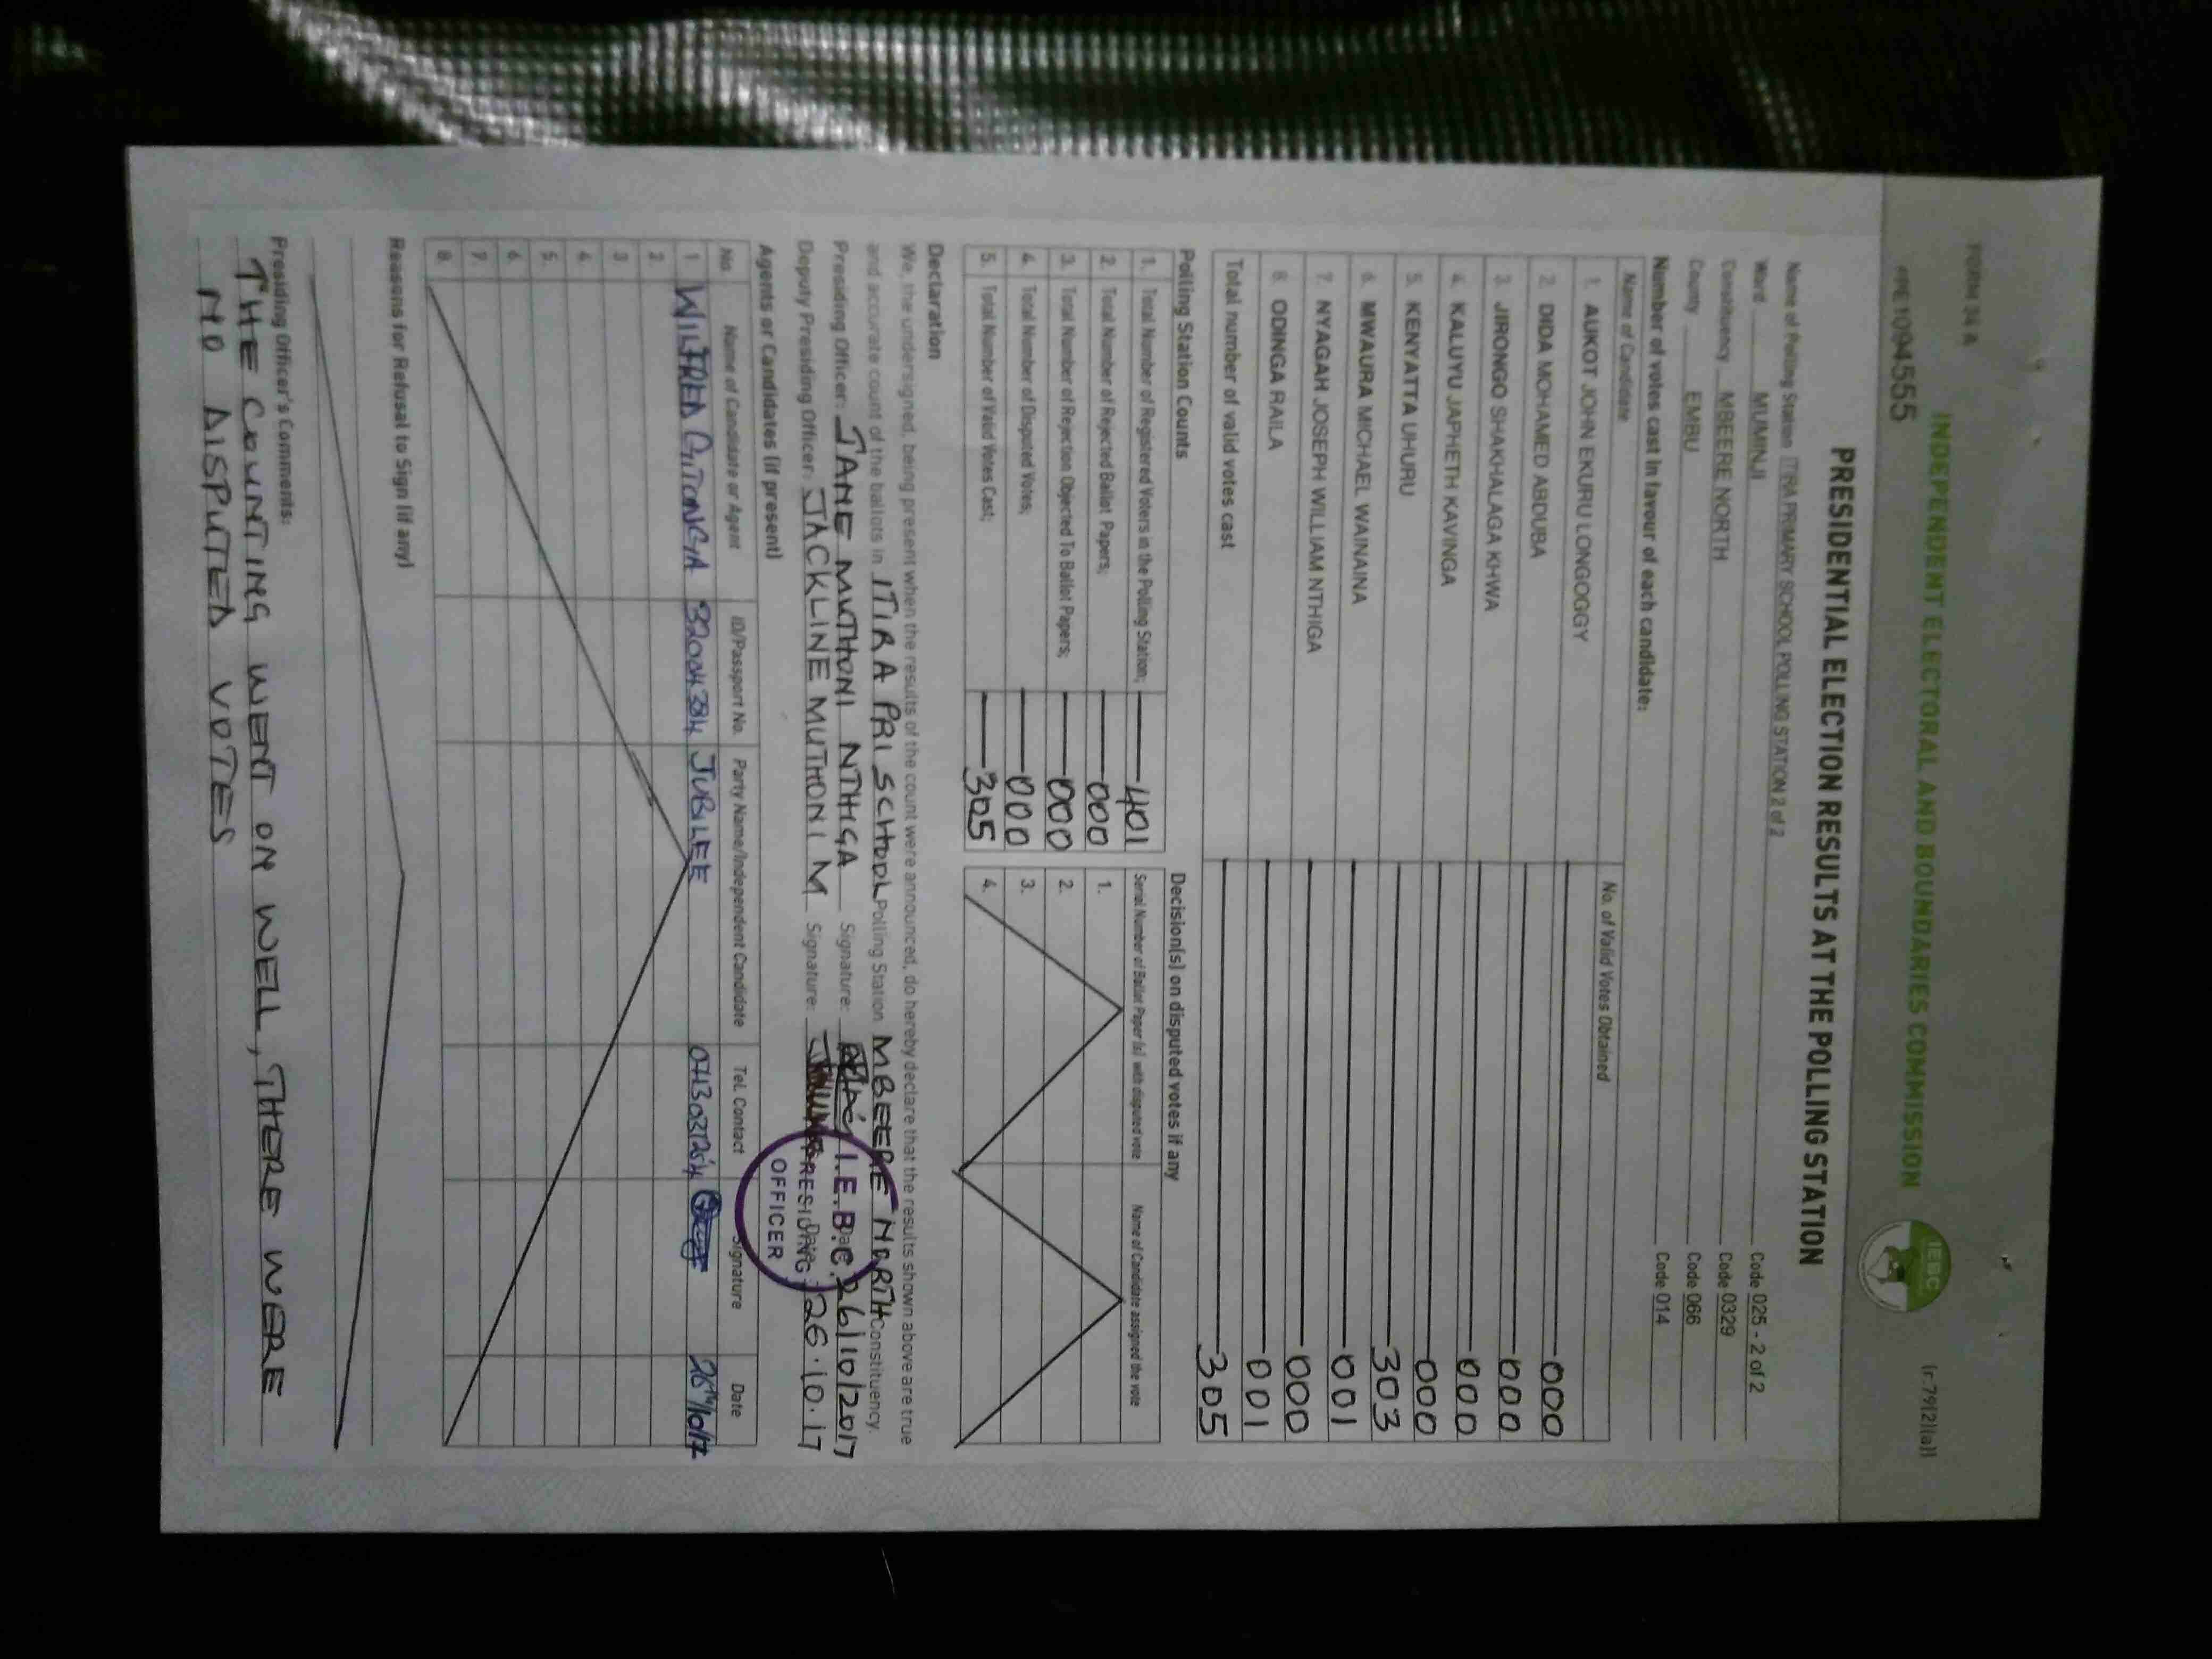 FORM 34 A
(r.79(2)(a))
INDEPENDENT ELECTORAL AND BOUNDARIES COMMISSION
IEBC
1094555
PRESIDENTIAL ELECTION RESULTS AT THE POLLING STATION
Name of Polling Station ITIRA PRIMARY SCHOOL POLLING STATION 2 of 2 Code 025 - 2 of 2
Ward MUMINJI Code 0329
Constituency MBEERE NORTH Code 066
County EMBU Code 014
Number of votes cast in favour of each candidate:
Name of Candidate No. of Valid Votes Obtained
1. AUKOT JOHN EKURU LONGOGGY 000
2. DIDA MOHAMED ABDUBA 000
3. JIRONGO SHAKHALAGA KHWA 000
4. KALUYU JAPHETH KAVINGA 000
5. KENYATTA UHURU 303
6. MWAURA MICHAEL WAINAINA 001
7. NYAGAH JOSEPH WILLIAM NTHIGA 000
8. ODINGA RAILA 001
Total number of valid votes cast 305
Polling Station Counts
1. Total Number of Registered Voters in the Polling Station; 401
2. Total Number of Rejected Ballot Papers; 000
3. Total Number of Rejection Objected To Ballot Papers; 000
4. Total Number of Disputed Votes; 000
5. Total Number of Valid Votes Cast; 305
Decision(s) on disputed votes if any
Serial Number of Ballot Paper (s) with disputed vote Name of Candidate assigned the vote
1.
2.
3.
4.
Declaration
We, the undersigned, being present when the results of the count were announced, do hereby declare that the results shown above are true
and accurate count of the ballots in ITIRA PRI SCHOOL Polling Station MBEERE NORTH Constituency.
Presiding Officer: JANE MUTHONI NTHIGA Signature: Date: 26/10/2017
Deputy Presiding Officer: JACKLINE MUTHONI M Signature: Date: 26.10.17
I.E.B.C.
PRESIDING
OFFICER
Agents or Candidates (if present)
No. Name of Candidate or Agent ID/Passport No. Party Name/Independent Candidate Tel. Contact Signature Date
1 WILFRED GITONGA 32004384 JUBILEE 0713031264 26th/10/17
2.
3
4.
5.
6.
7.
8.
Reasons for Refusal to Sign (if any)
Presiding Officer's Comments:
THE COUNTING WENT ON WELL, THERE WERE
NO DISPUTED VOTES